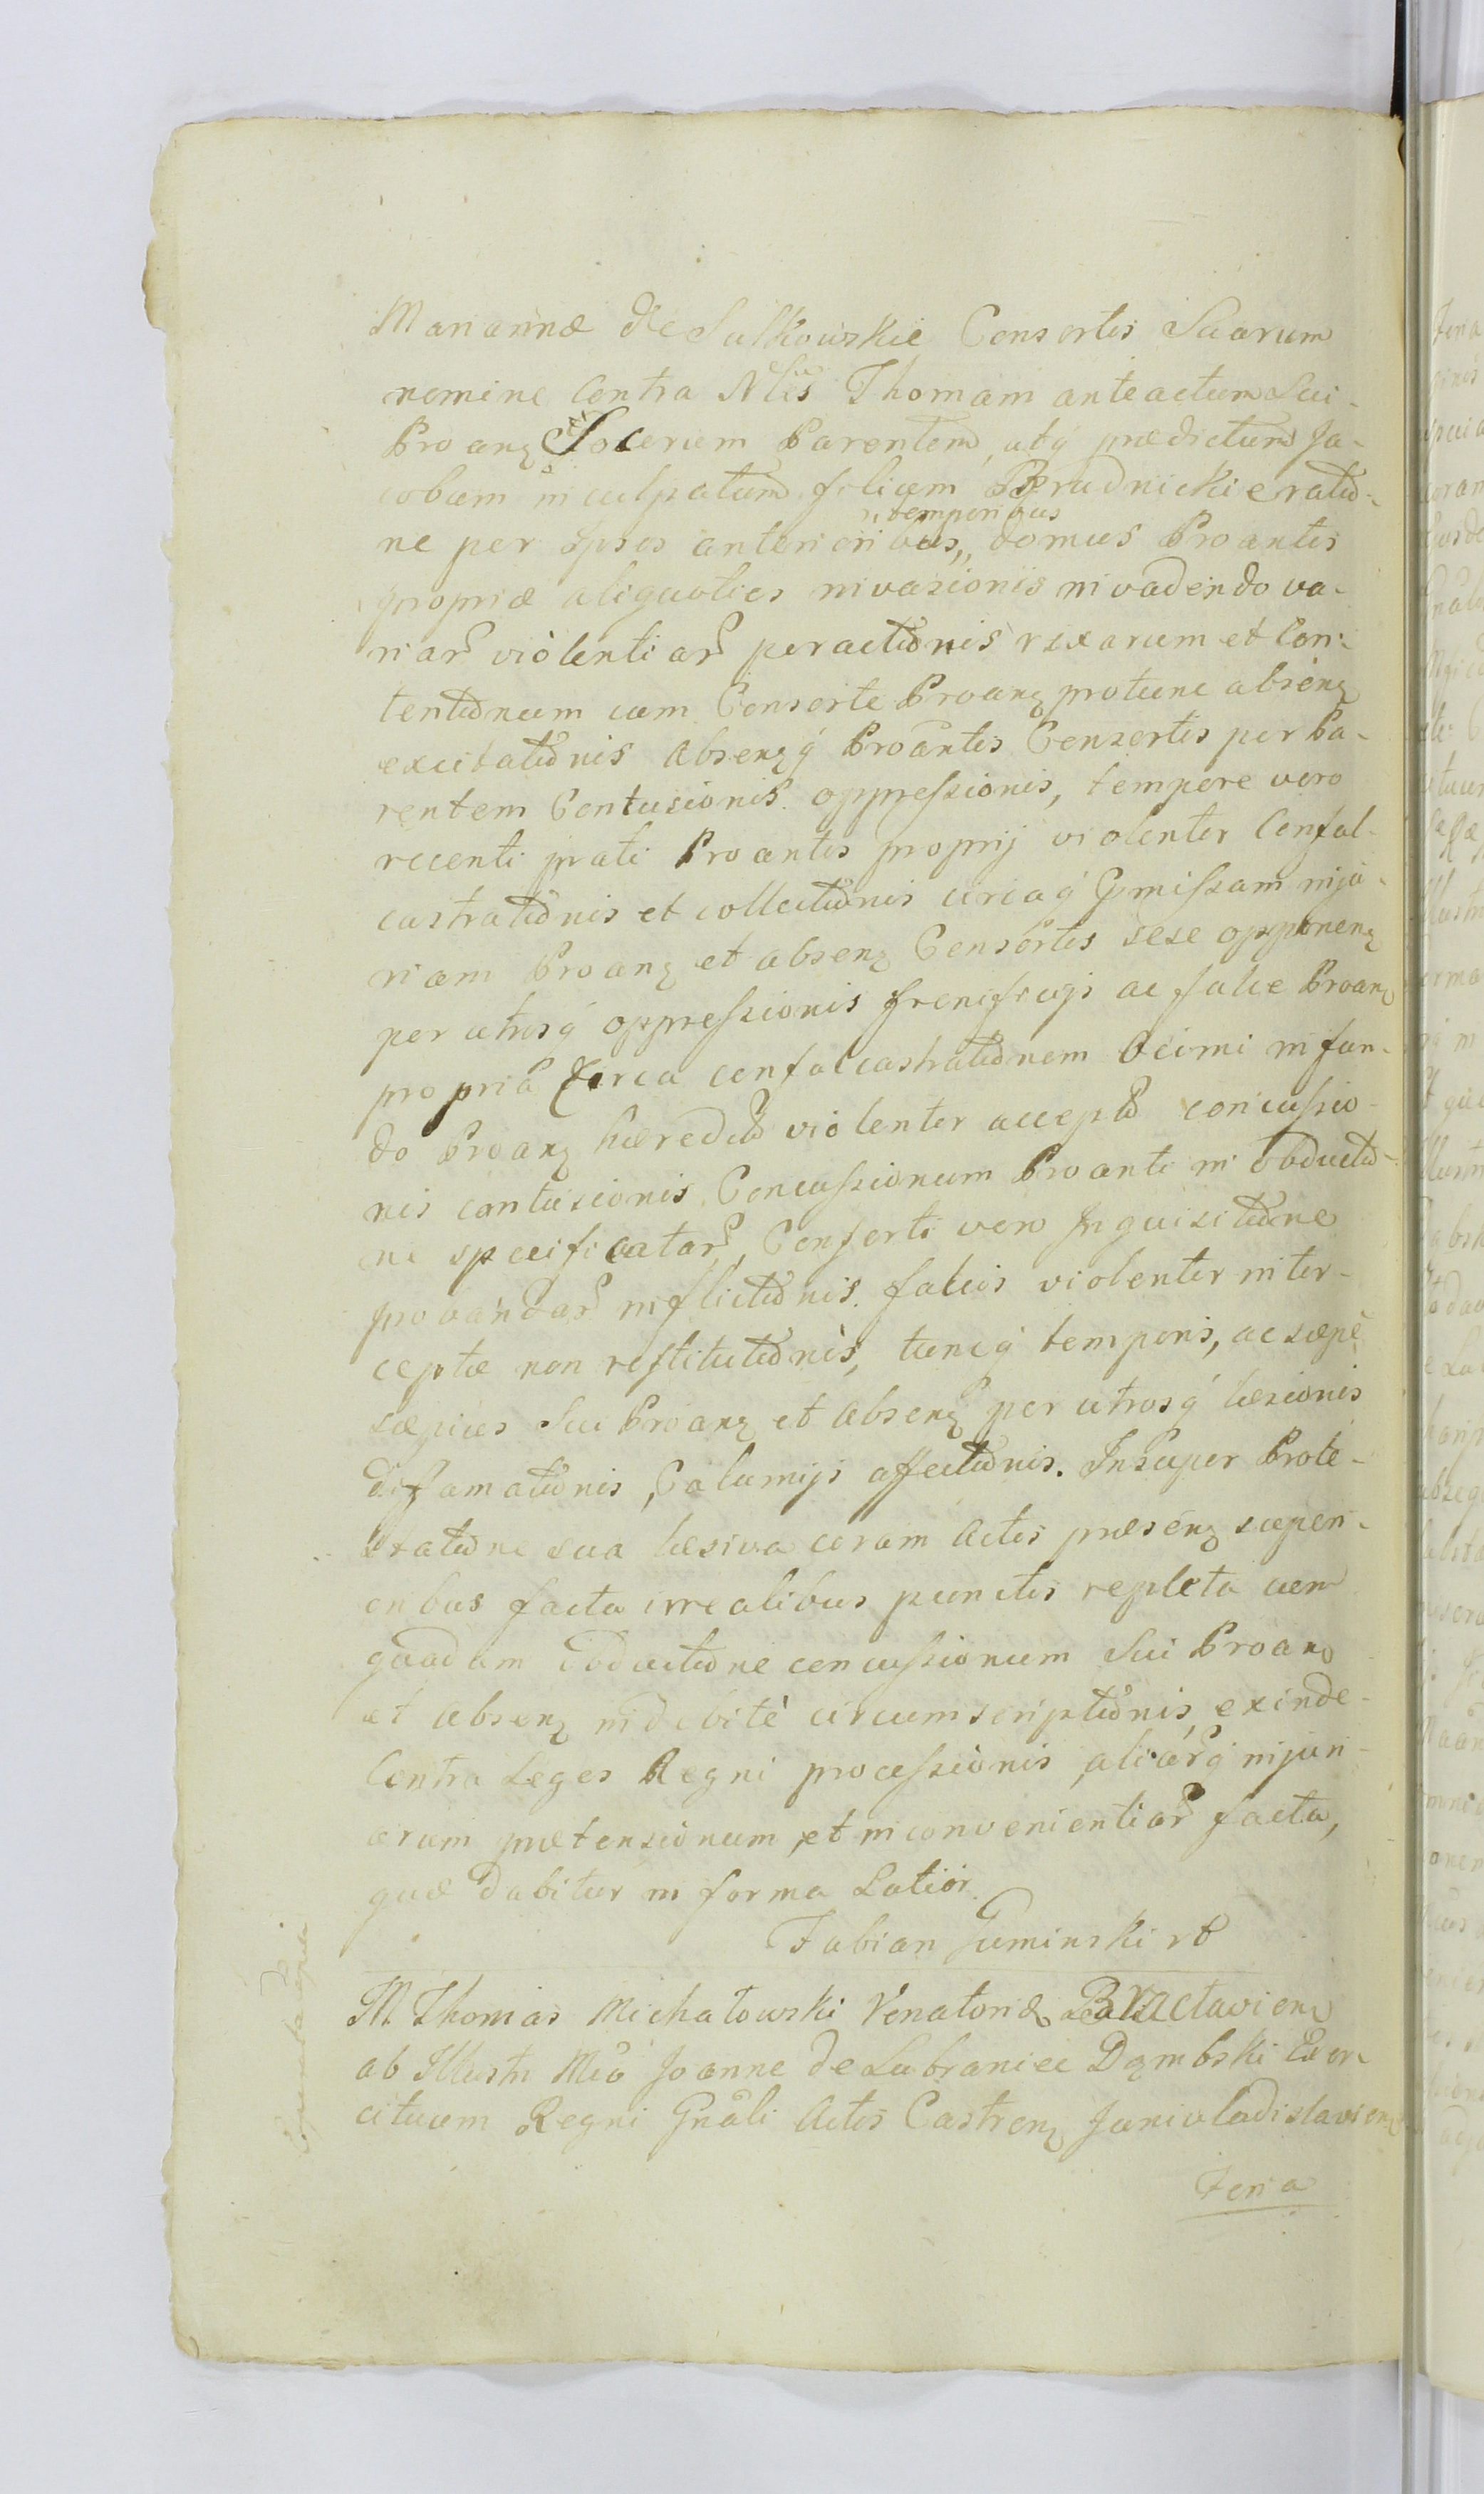 Mariannæ de Sulkowskie Consortis Suarum
nomine Contra Nles Thomam anteactum sui
Proanz Socerum Parentem, atq prædictum Ja-
cobum inculpatum filium Brudnickie ratio-
ne per Ipsos anterioribus,, domus Proantis
,, temporibus
propriæ aliquoties invasionis invadendo va-
riar violentiar peractionis rixarum et Con-
tentionum cum Consorte Proanz protunc absenz
excitationis absenzq Proantis Consortis per Pa-
rentem Contusionis oppressionis, tempore vero
recenti prati Proantis proprij violenter Confal-
castrationis et collectionis circaq Pmissam inju-
riam Proanz et absenz Consortis sese opponenz
per utrosq oppressionis frenifrugi ac falce Proanz
propriâ Circa confalcastrationem Ocimi in fun-
do Proanz hæredit violenter accepta concussio-
nis contusionis Concussionum Proanti in obductio-
ne specificatar, Consorti vero Inquisitione
probandar inflictionis. falcis violenter inter-
ceptæ non restitutionis, tuncq temporis, ac sæpe
sæpius sui Proanz et absenz per utrosq læsionis
difamationis, Calumijs affectionis. Insuper Prote-
stratione sua læsiva coram Actis præsenz superi-
oribus facta irrealibus punctis repleta cum
quadam obductione concussionum Sui Proanz
et absenz indebitè circumscriptionis, exinde
Contra Leges Regni processionis, aliarq injuri-
arum prætensionum et inconvenientiar facta,
quæ dabitur in forma Latiòr.
Fabian Guminski rb
M. Thomas Michałowski Venatoridæ Bractaviens
ab Illustri Mco Joanne de Lubraniec Dąmbski Exer-
cituum Regni Gnâli Actis Castrenz Juniuladislaviens
Feria